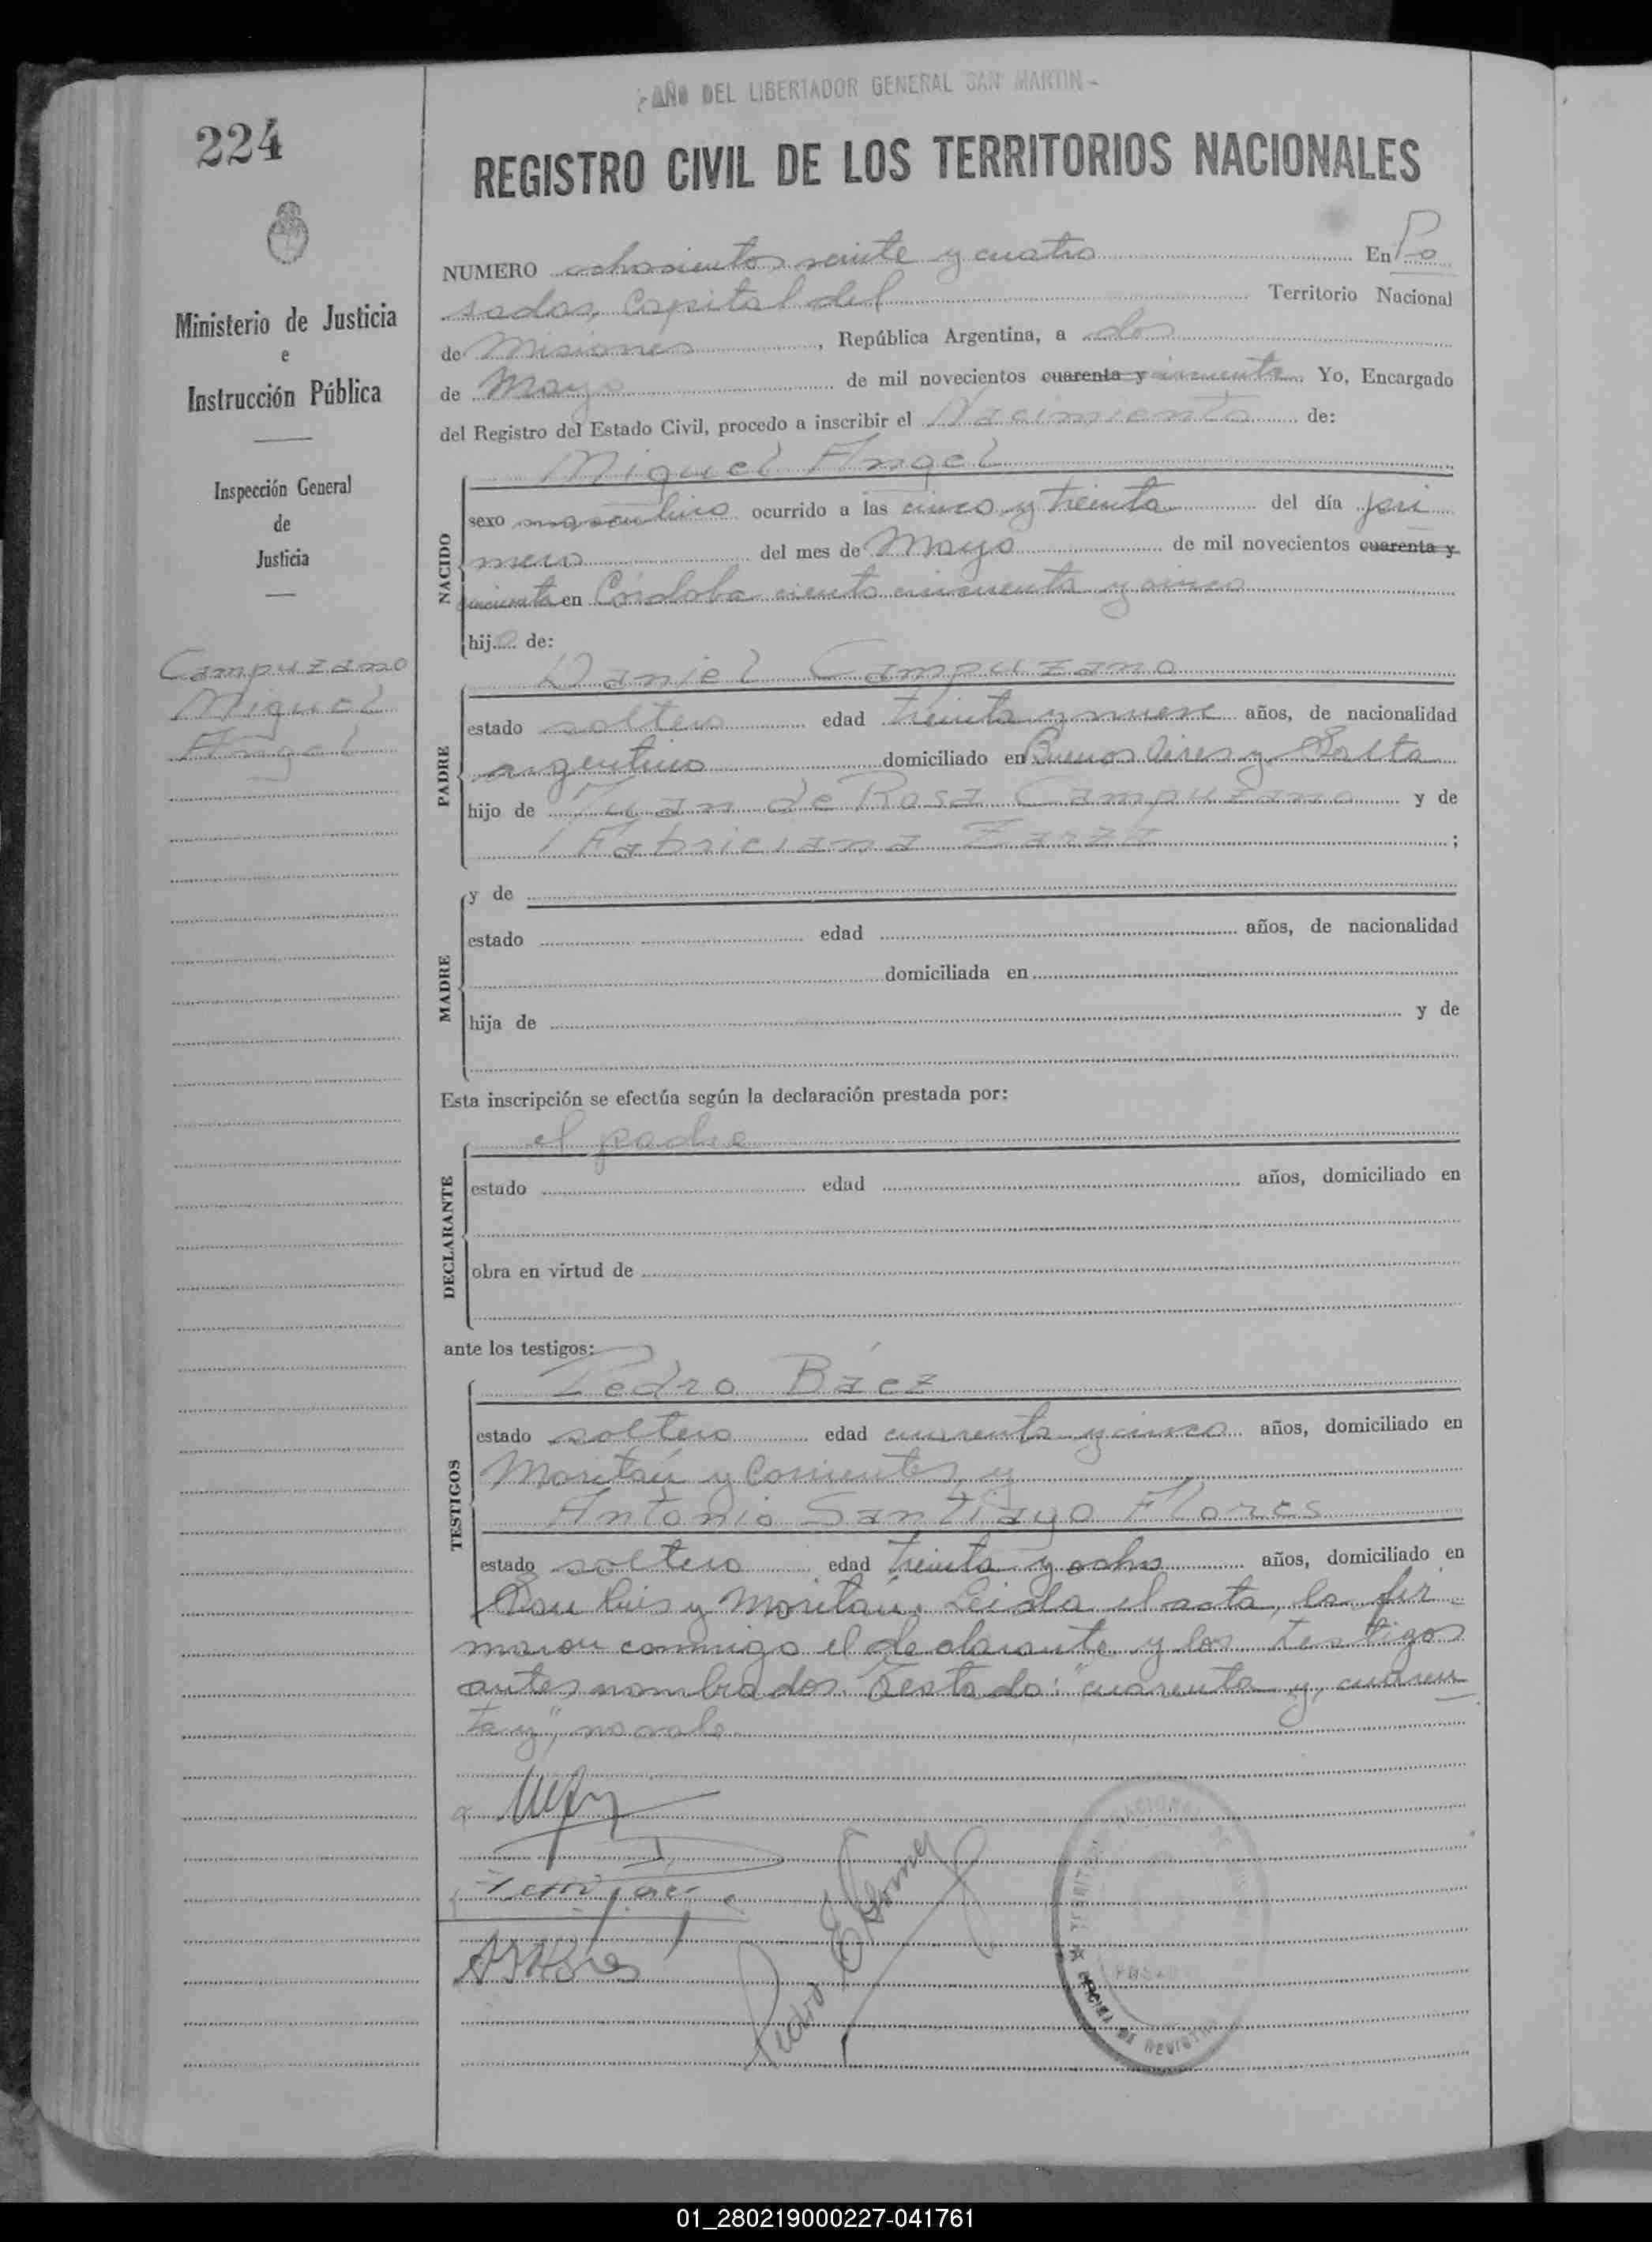 - AÑO DEL LIBERTADOR GENERAL SAN MARTIN -
224
REGISTRO CIVIL DE LOS TERRITORIOS NACIONALES
Ministerio de Justicia
e
Instrucción Pública
Inspección General
de
Justicia
Campuzano
Miguel
Angel
NUMERO ochosientos veinte y cuatro En Po
sadas, Capital del Territorio Nacional
de Misiones, República Argentina, a dos
de Mayo de mil novecientos cuarenta y cincuenta. Yo, Encargado
del Registro del Estado Civil, procedo a inscribir el Nacimiento de:
NACIDO
Miguel Angel
sexo masculino ocurrido a las cinco y treinta del día pri
mero del mes de Mayo de mil novecientos cuarenta y
cincuenta en Córdoba ciento cincuenta y cinco
hijo de:
PADRE
Daniel Campuzano
estado soltero edad treinta y nueve años, de nacionalidad
argentino domiciliado en Buenos Aires y Salta
hijo de Juan de Rosa Campuzano y de
Fabriciana Zarza ;
MADRE
y de
estado edad años, de nacionalidad
domiciliada en
hija de y de
Esta inscripción se efectúa según la declaración prestada por:
DECLARANTE
el padre
estado edad años, domiciliado en
obra en virtud de
ante los testigos:
TESTIGOS
Pedro Báez
estado soltero edad cuarenta y cinco años, domiciliado en
Moritán y Corrientes y
Antonio Santiago Flores
estado soltero edad treinta y ocho años, domiciliado en
San Luis y Moritán. Leida el acta, la fir
maron conmigo el declarante y los testigos
antes nombrados. Testado: "cuarenta y, cuaren
ta y", no vale.
ASFlores
Pedro E Gomez
TERRITORIO NACIONAL DE
POSADAS
OFICINA DE REGISTRO
01_280219000227-041761